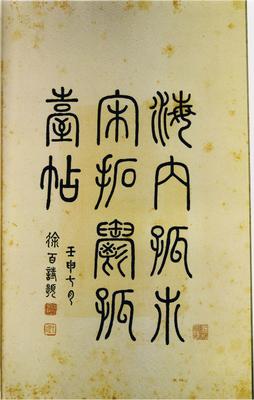 海內孤本
宋拓鬱孤
臺帖
壬申七月
徐百詩題